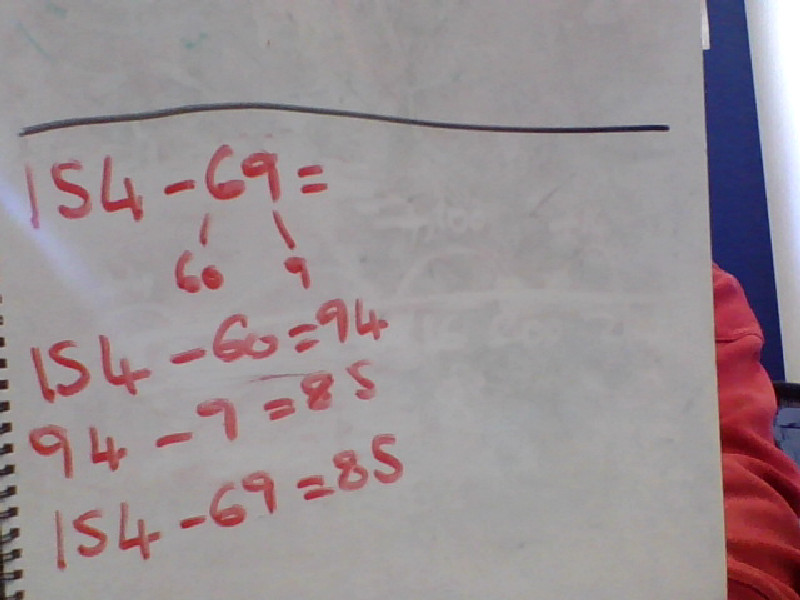 154 - 69 =
60 9
154 - 60 = 94
94 - 9 = 85
154 - 69 = 85